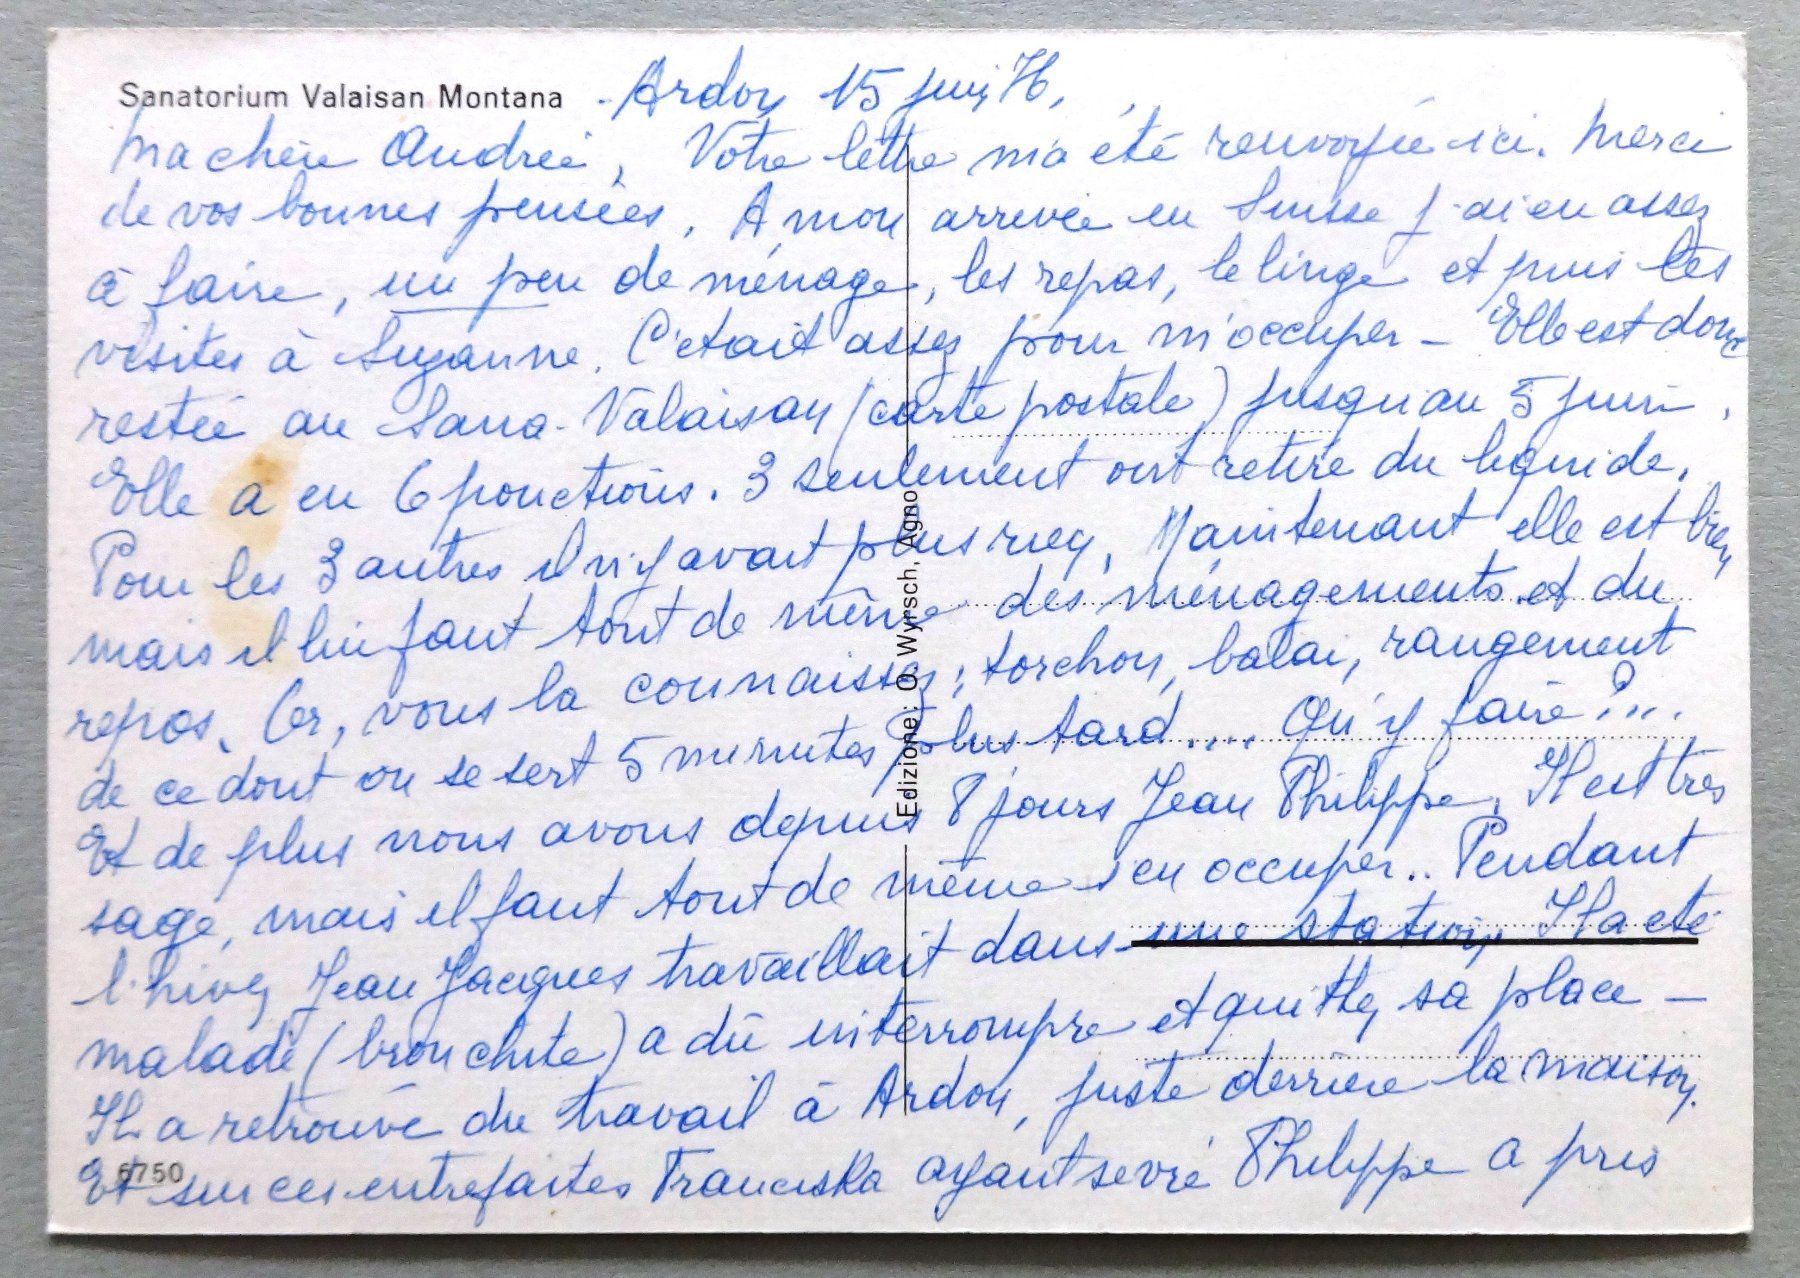 Sanatorium Valaisan Montana
Ardon 15 juin 76,
Ma chère Andrée, Votre lettre m'a été renvoyée ici. Merci
de vos bonnes pensées. A mon arrivée en Suisse j'ai eu assez
à faire, un peu de ménage, les repas, le linge et puis les
visites à Suzanne. C'était assez pour m'occuper – Elle est donc
restée au Sana-Valaisan (carte postale) jusqu'au 5 juin.
Elle a eu 6 ponctions. 3 seulement ont retiré du liquide.
Pour les 3 autres il n'y avait plus rien. Maintenant elle est bien
mais il lui faut tout de même des ménagements et du
repos. Or, vous la connaissez ; torchon, balai, rangement
de ce dont on se sert 5 minutes plus tard.... Qu'y faire ?...
Et de plus nous avons depuis 8 jours Jean Philippe. Il est très
sage, mais il faut tout de même s'en occuper.. Pendant
l'hiver Jean Jacques travaillait dans une station. Il a été
malade (bronchite) a dû interrompre et quitter sa place –
Il a retrouvé du travail à Ardon, juste derrière la maison.
Et sur ces entrefaites Franciska ayant sevré Philippe a pris
6750
Edizione: O. Wyrsch, Agno